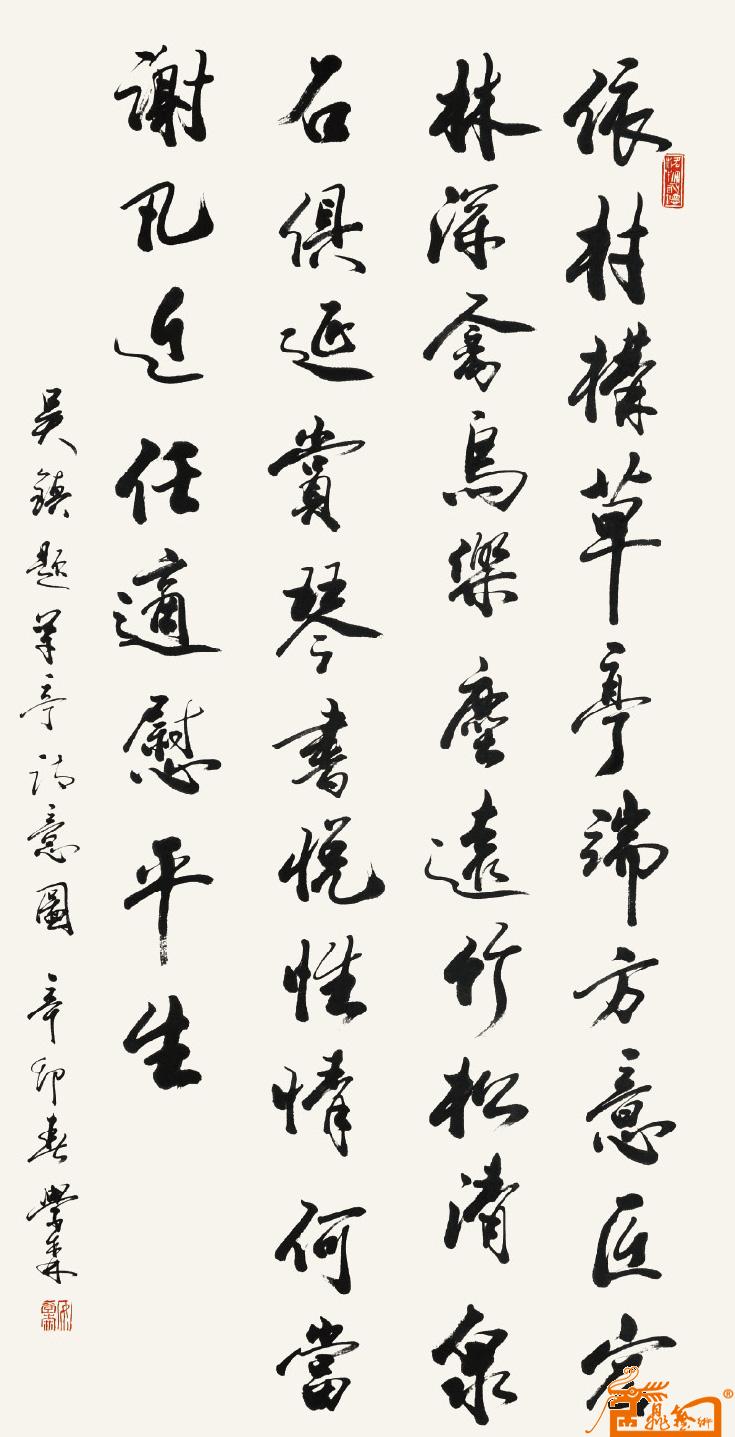 依村構草亭端方意匠宏
林深禽鳥樂塵遠竹松清泉
石俱延賞琴書悅性情何當
謝凡近任適慰平生
吳鎮題草亭詩意圖 辛卯春